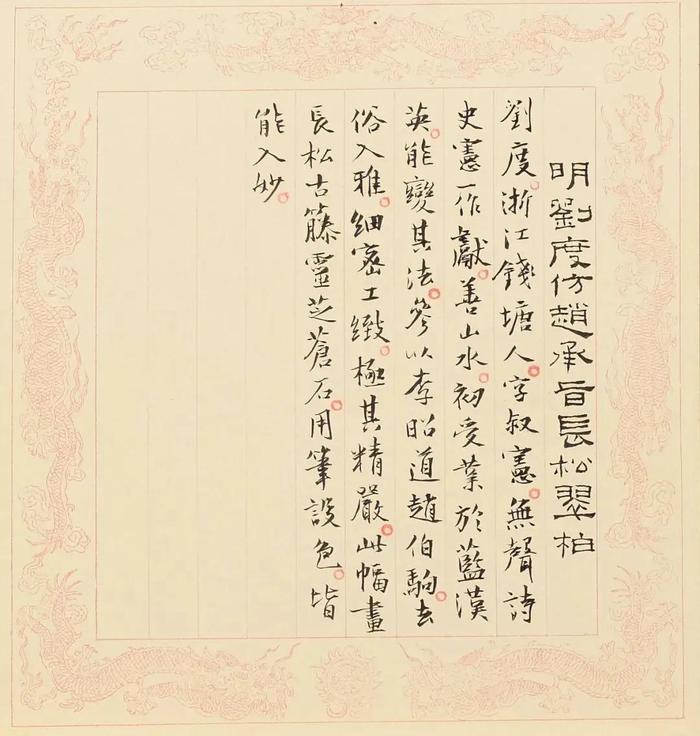 明劉度仿趙承旨長松翠柏
劉度浙江錢塘人字叔憲無聲詩
史憲一作獻善山水初受業於藍漢
英能變其法參以李昭道趙伯駒去
俗入雅細密工緻極其精嚴此幅畫
長松古藤靈芝蒼石用筆設色皆
能入妙